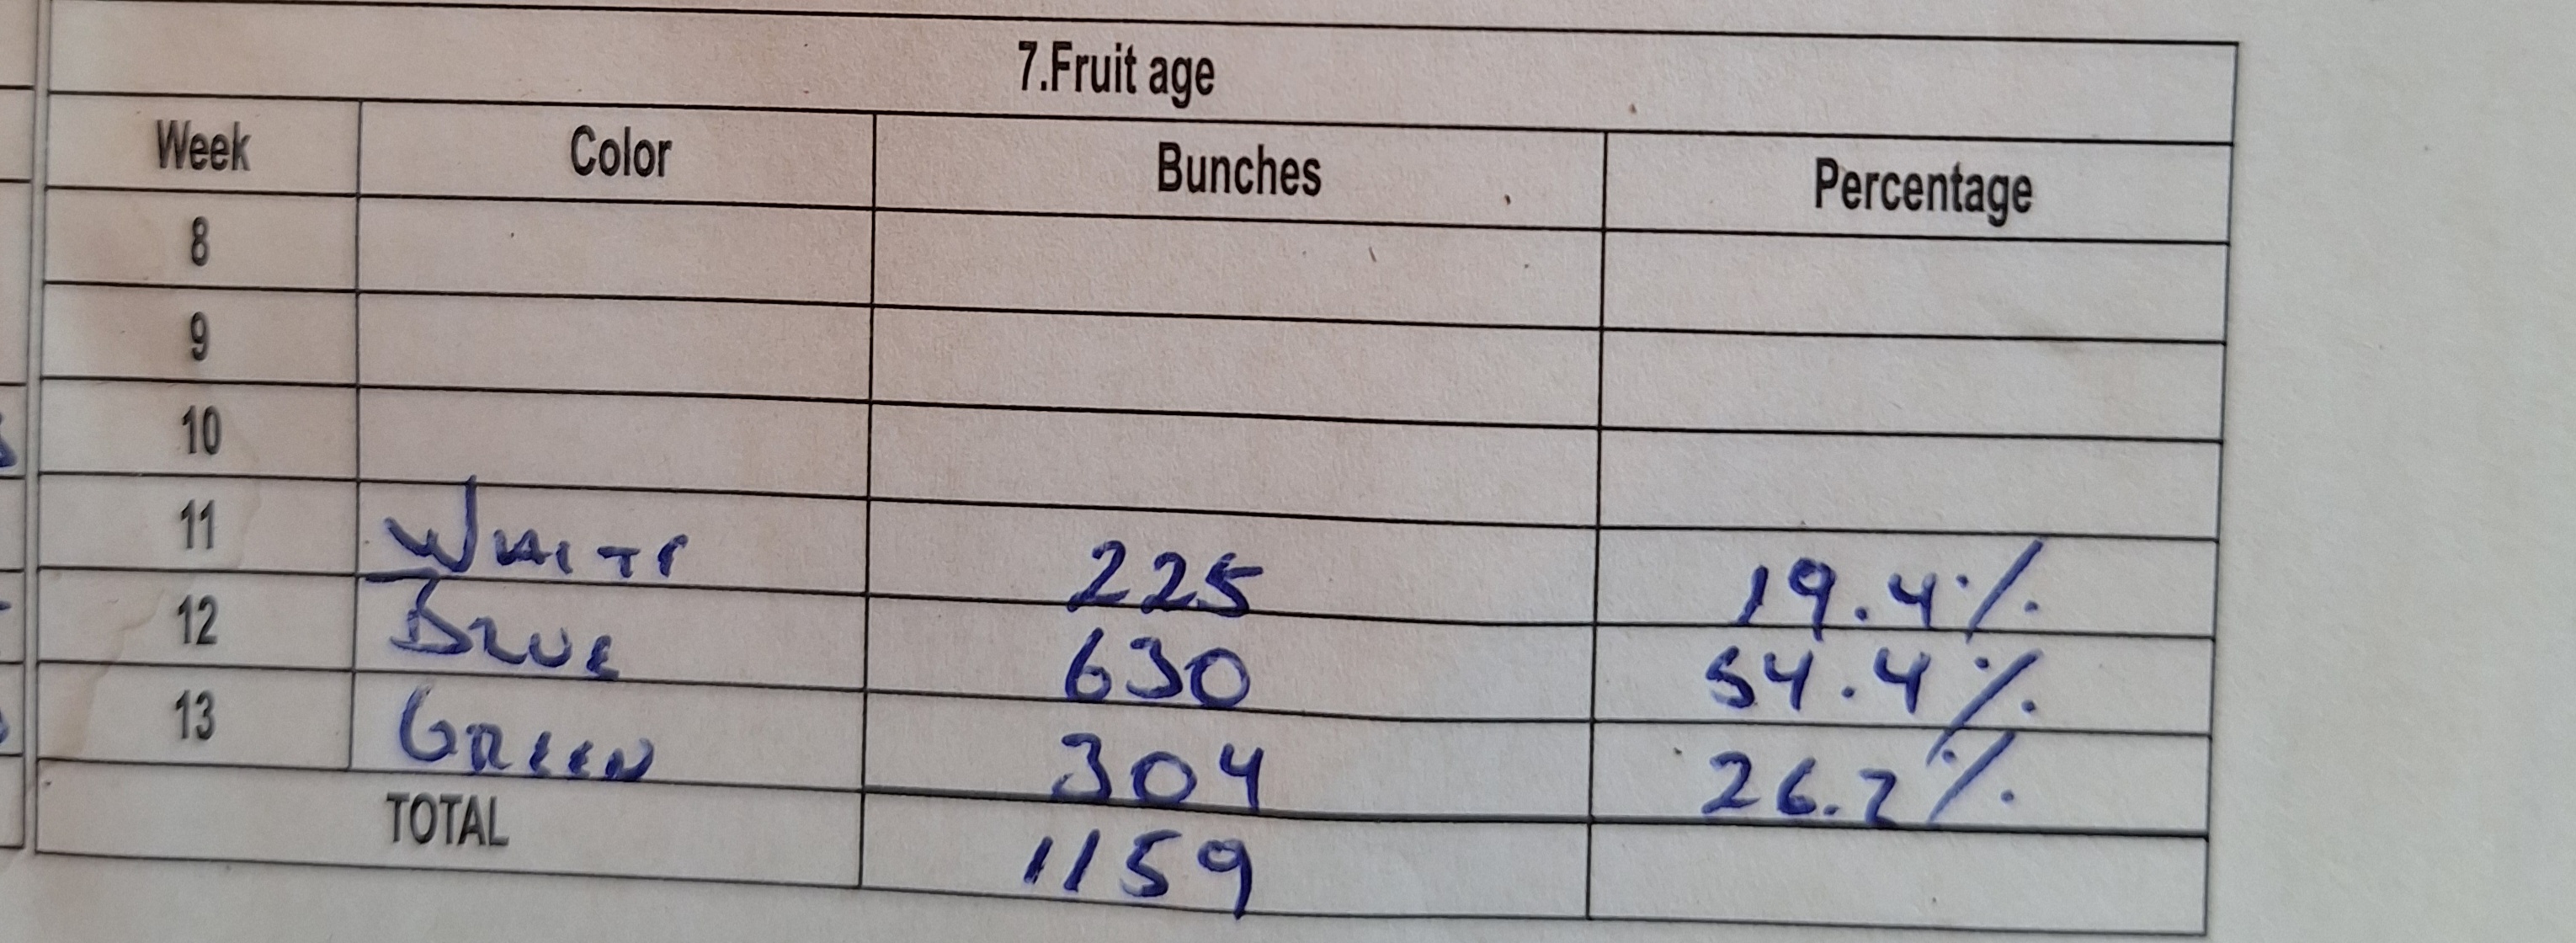 7.Fruit age
Week Color Bunches Percentage
8
9
10
11 WHITE 225 19.4%
12 BLUE 630 54.4%
13 GREEN 304 26.2%
TOTAL 1159